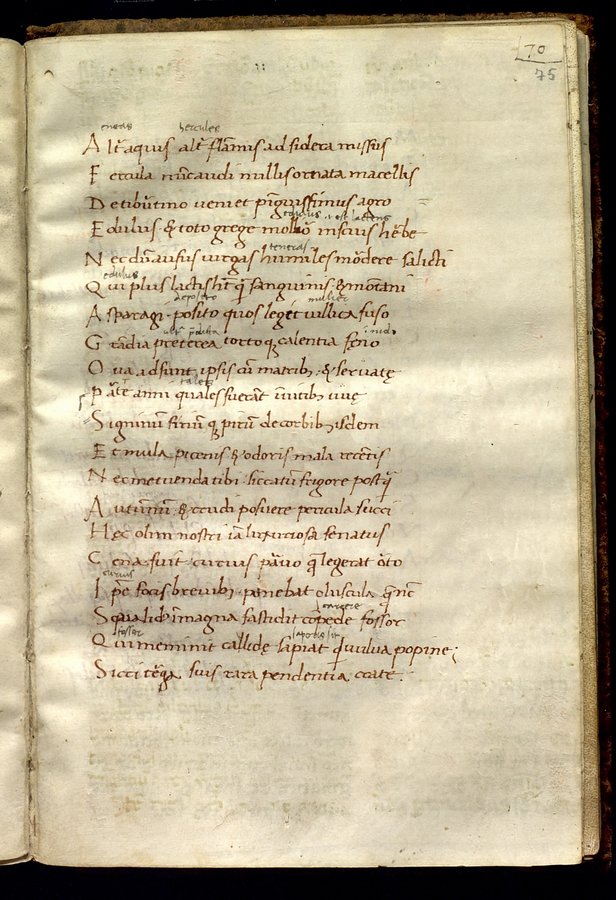 70
75
eneas hercules
Alt̄ aquis alt̄ flāmis ad sidera missus
Fercula nūc audi nullis ornata macellis
De tiburtino veniet pīguissimus agro
edulus
Edulus & toto grege mollior inscius herbe
teneras
Nec dū ausus virgas humiles mordere salicti
edulus
Qui plus lactis h̄t q̄ sanguinis & mōtani
deposito mulier
Asparagi posito quos legit villica fuso
Grādia preterea tortoq; calentia feno
Ova adsunt ipsis cū matrib; & servatę
tales
Parte anni quales fuerāt ī vitib; uvę
Signinū siriūq; pirū de corbib; isdem
Emula picenis & odoris mala recētis
Nec metuenda tibi siccatū frigore postq̄
Autūnū & crudi posuere pericula succi
Hęc olim nostri iā luxuriosa senatus
Cena fuit curius parvo q̄ legerat orto
curius
Ipse focis brevib; ponebat oluscula q̄ nūc
carcere
Squalidus ī magna fastidit cōpede fossor
fossor
Qui meminit calide sapiat q̄ vulva popine;
Sicci terga suis rara pendentia crate.